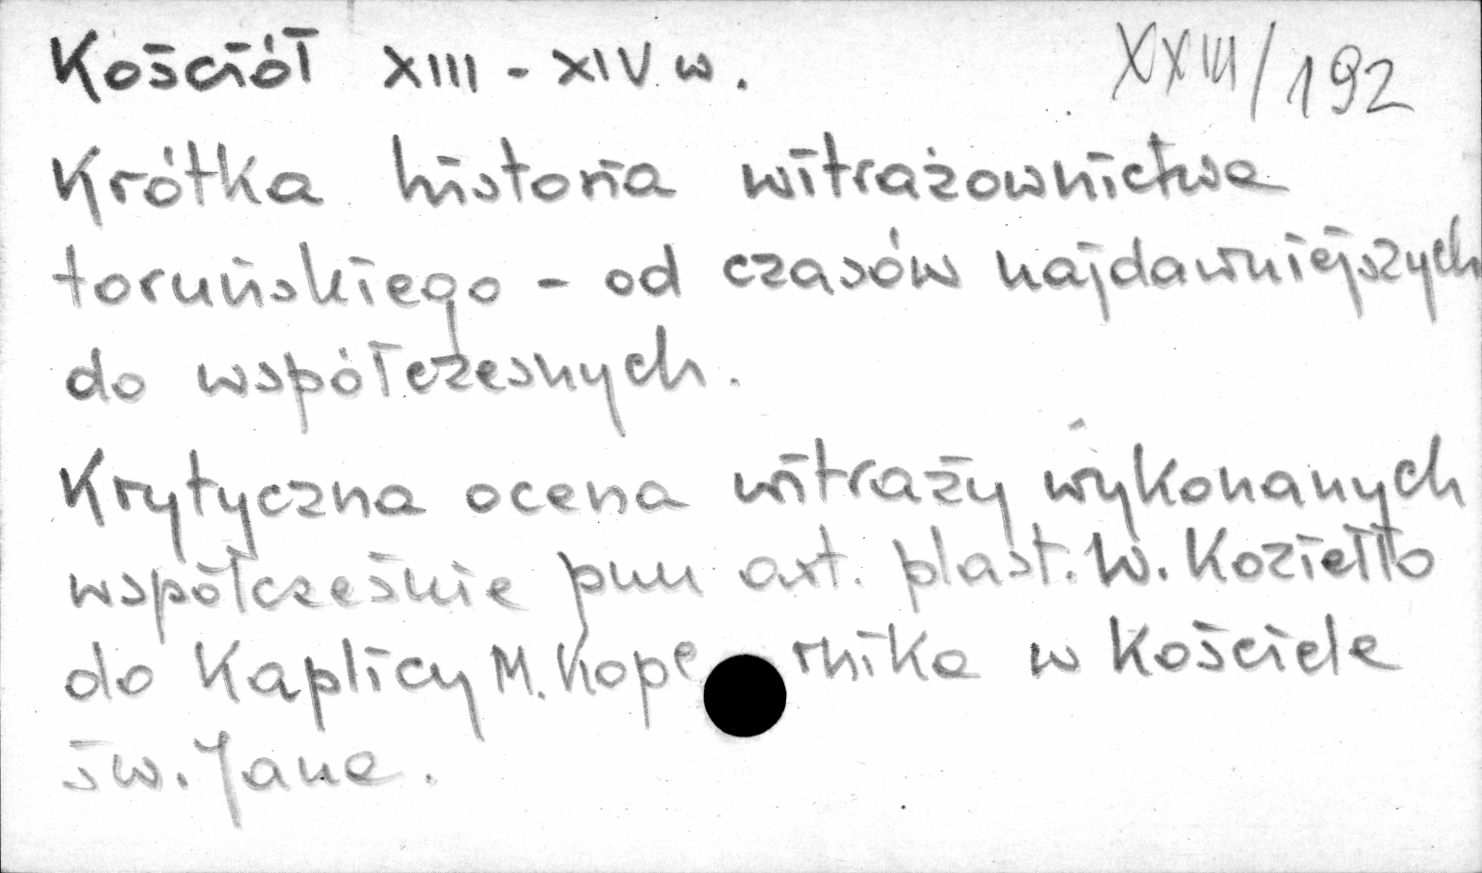 Kościół XIII - XIV w. XXIII/192
Krótka historia witrażownictwa
toruńskiego - od czasów najdawniejszych
do współczesnych.
Krytyczna ocena witraży wykonanych
współcześnie art. plast. W. Koziełło
do Kaplicy M. Kopernika w Kościele
św. Jana.